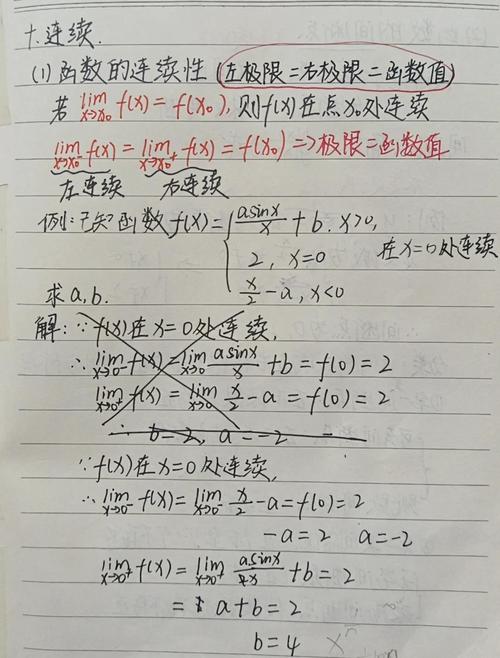 十.连续.
(1)函数的连续性(左极限=右极限=函数值)
若 lim x→x₀ f(x)=f(x₀),则f(x)在点x₀处连续
lim x→x₀⁻ f(x)=lim x→x₀⁺ f(x)=f(x₀)=>极限=函数值
左连续 右连续
例:已知函数f(x)={ asinx/x +b. x>0,
2, x=0 在x=0处连续
x/2 -a, x<0
求a,b.
解:∵f(x)在x=0处连续,
∴lim x→0⁻ f(x)=lim x→0 asinx/x +b=f(0)=2
lim x→0⁺ f(x)=lim x→0 x/2 -a=f(0)=2
∴ b=2, a=-2
∵f(x)在x=0处连续,
∴lim x→0⁻ f(x)=lim x→0⁻ x/2 -a=f(0)=2
-a=2 a=-2
lim x→0⁺ f(x)=lim x→0⁺ asinx/x +b=2
= a+b=2
b=4